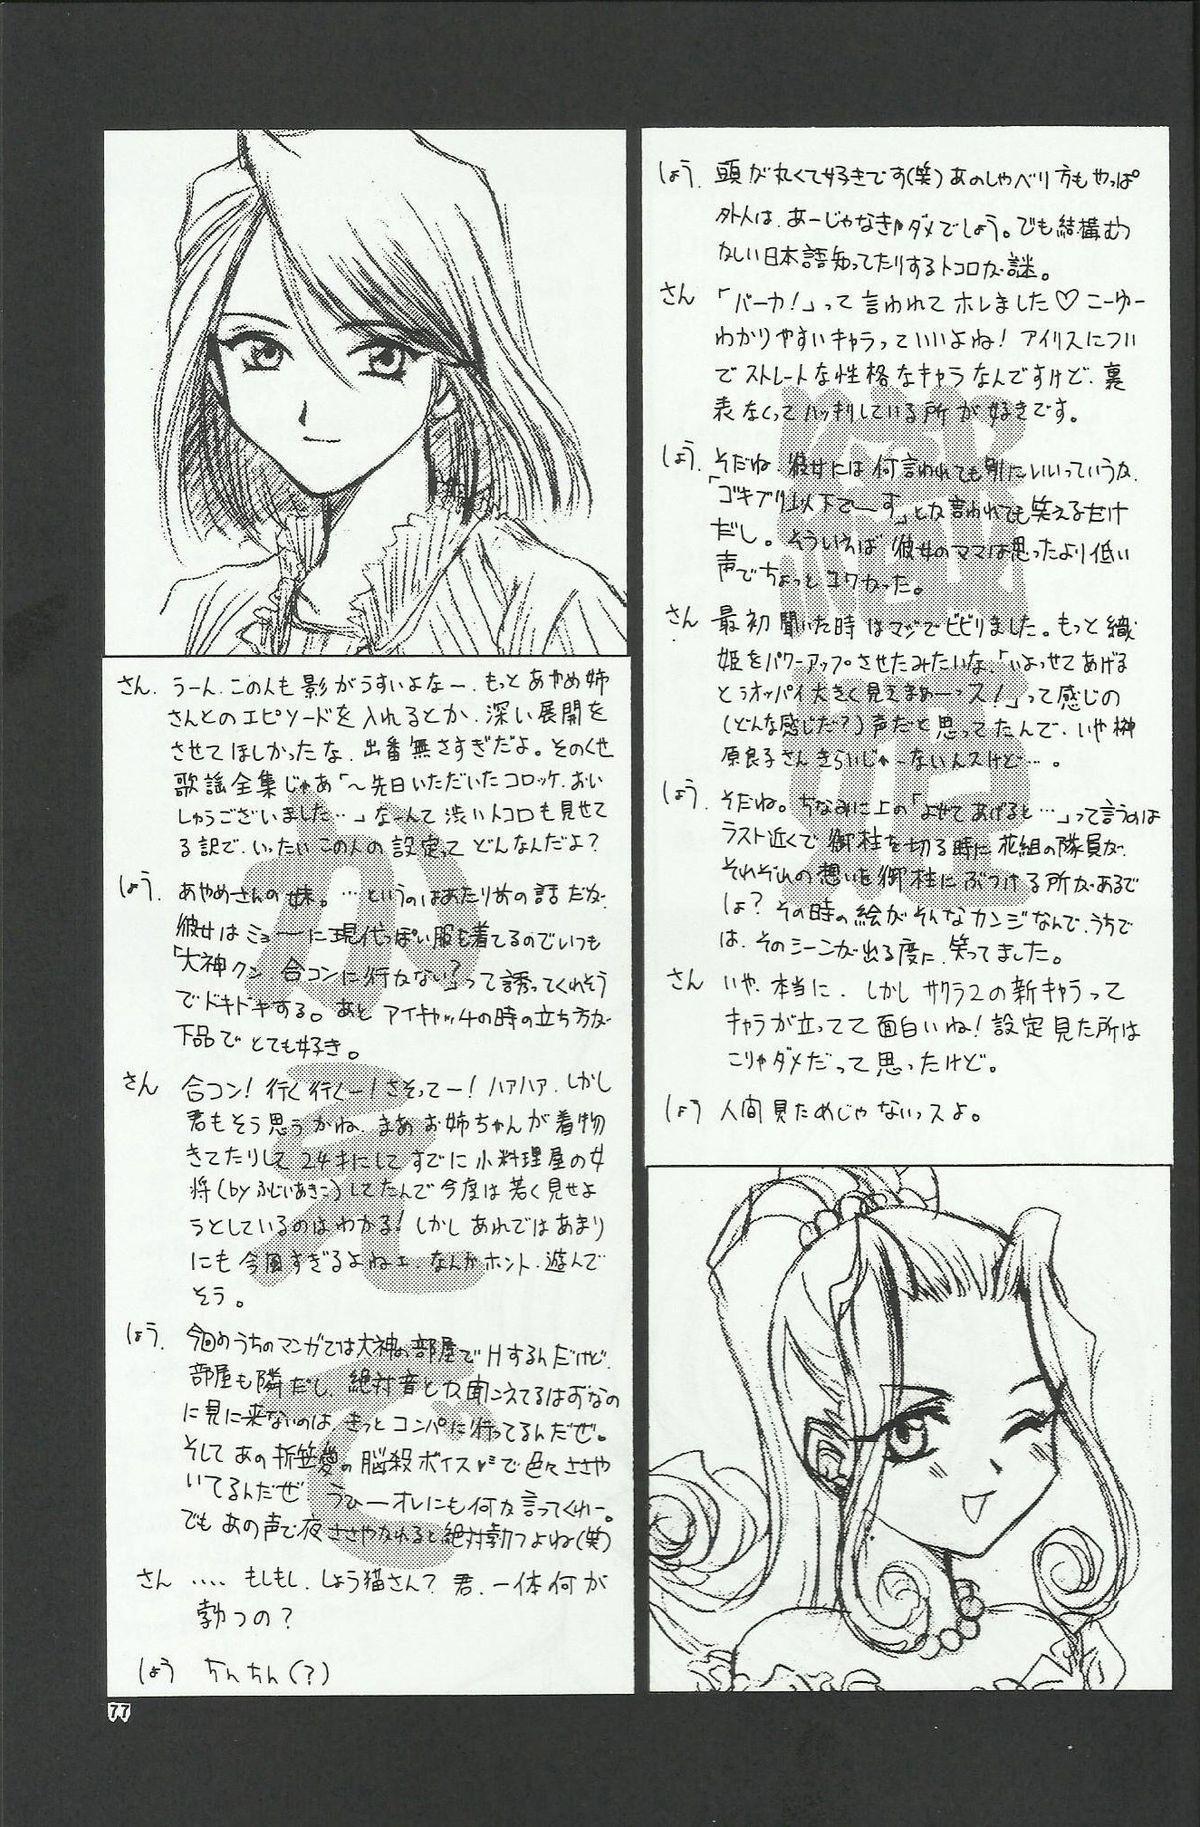 しょう. 頭が丸くて好きです(笑)あのしゃべり方もやっぱ
外人は、あーじゃなきゃダメでしょう。でも結構むつ
かしい日本語知ってたりするトコロが謎。
さん 「バーカ!」って言われてホレました♡こーゆー
わかりやすいキャラっていいよね!アイリスについ
でストレートな性格なキャラなんですけど、裏
表なくってハッキリしている所が好きです。
しょう. そだね、彼女には何言われても別にいいっていうか、
「ゴキブリ以下でーす」とか言われても笑えるだけ
だし。そういえば彼女のママは思ったより低い
声でちょっとコワかった。
さん 最初聞いた時はマジでビビリました。もっと織
姫をパワーアップさせたみたいな、「いよっせてあげる
とぅオッパイ大きく見えまぁーっス!」って感じの
(どんな感じだ?)声だと思ってたんで、いや榊
原良子さんきらいじゃーないんスけど…。
しょう. そだね。ちなみに上の「よせてあげると…」って言うのは
ラスト近くで御柱を切る時に花組の隊員が、
それぞれの想いを御柱にぶつける所があるで
しょ?その時の絵がそんなカンジなんで、うちで
は、そのシーンが出る度に、笑ってました。
さん いや、本当に、しかしサクラ2の新キャラって
キャラが立ってて面白いね!設定見た所は
こりゃダメだって思ったけど。
しょう 人間見ためじゃないっスよ。
さん. うーん、この人も影がうすいよなー、もっとあやめ姉
さんとのエピソードを入れるとか、深い展開を
させてほしかったな、出番無さすぎだよ。そのくせ
歌謡全集じゃあ「～先日いただいたコロッケ、おい
しゅうございました…」なーんて渋いトコロも見せて
る訳で、いったいこの人の設定ってどんなんだよ?
しょう. あやめさんの妹。…というのはあたり前の話だが、
彼女はミョーに現代っぽい服を着てるのでいつも
「大神クン 合コンに行かない?」って誘ってくれそう
でドキドキする。あと アイキャッチの時の立ち方が
下品で とても好き。
さん 合コン!行く行くー!さそってー!ハァハァ、しかし
君もそう思うかね、まああお姉ちゃんが着物
きてたりして24才にしてすでに小料理屋の女
将(byふじいあきこ)してたんで今度は若く見せよ
うとしているのはわかる!しかしあれではあまり
にも今風すぎるよねェ、なんかホント、遊んで
そう。
しょう. 今回のうちのマンガでは大神の部屋でHするんだけど、
部屋も隣だし、絶対音とか聞こえてるはずなの
に見に来ないのは、きっとコンパに行ってるんだぜ。
そしてあの折笠愛の脳殺ボイスで色々ささや
いてるんだぜ うひーオレにも何か言ってくれー。
でもあの声で夜ささやかれると絶対勃つよね(笑)
さん …. もしもし、しょう猫さん?君、一体何が
勃つの?
しょう ちんちん(?)
かえで
77